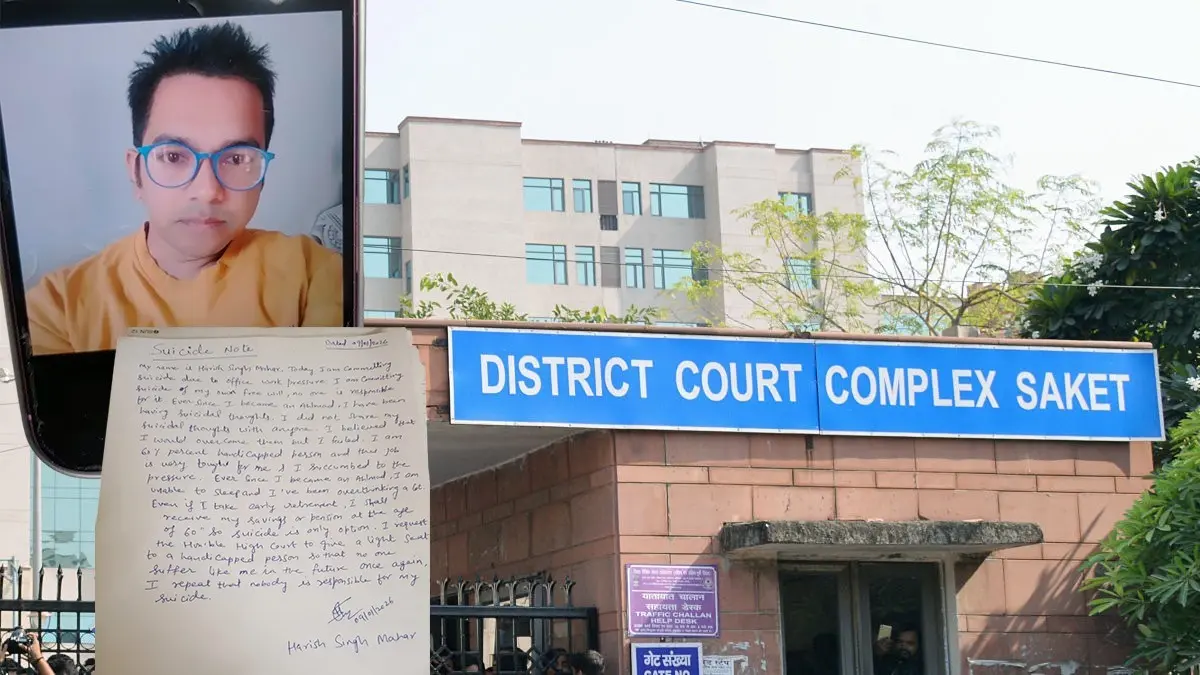 Suicide Note
Dated 09/01/2026
My name is Harish Singh Mahar. Today I am Committing
Suicide due to office work pressure. I am Committing
Suicide of my own free will, no one is responsible
for it. Ever Since I became an Ahlmad, I have been
having Suicidal thoughts. I did not share my
Suicidal thoughts with anyone. I believed that
I would overcome them but I failed. I am
60% percent handicapped person and this job
is very tought for me & I Succumbed to the
pressure. Ever Since I became an Ahlmad, I am
unable to sleep and I've been overthinking a lot.
Even if I take early retirement, I shall
receive my Savings or pension at the age
of 60 So Suicide is only option. I request
the Hon'ble High Court to give a light Seat
to a handicapped person so that no one
Suffer like me in the future once again,
I repeat that nobody is responsible for my
Suicide.
09/01/2026
Harish Singh Mahar
DISTRICT COURT COMPLEX SAKET
यातायात चालान
सहायता डेस्क
TRAFFIC CHALLAN
HELP DESK
गेट संख्या
GATE NO